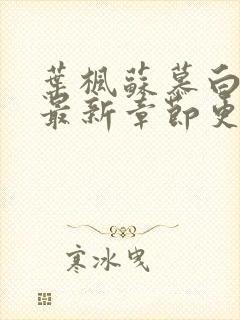 葉楓蘇慕白
最新章節更
寒冰曳